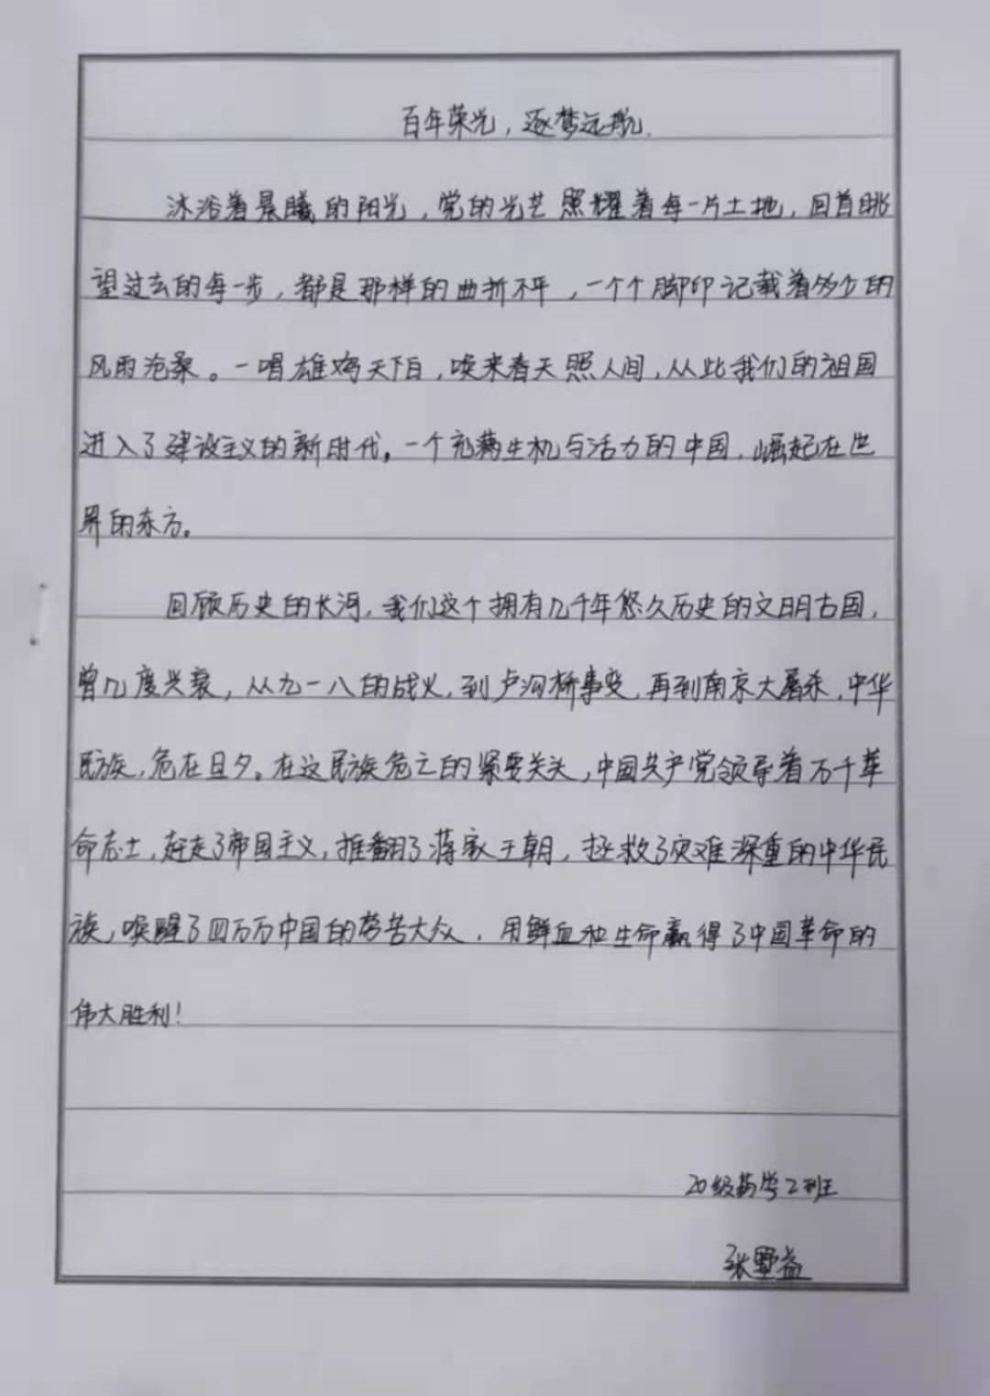 百年荣光，逐梦远航.
沐浴着晨曦的阳光，党的光艺照耀着每一片土地，回首眺
望过去的每一步，都是那样的曲折不平，一个个脚印记载着多少的
风雨沧桑。一唱雄鸡天下白，唤来春天照人间，从此我们的祖国
进入了建设主义的新时代。一个充满生机与活力的中国，崛起在世
界的东方。
回顾历史的长河，我们这个拥有几千年悠久历史的文明古国，
曾几度兴衰，从九一八的战火，到卢沟桥事变，再到南京大屠杀，中华
民族，危在旦夕。在这民族危亡的紧要关头，中国共产党领导着万千革
命志士，赶走了帝国主义，推翻了蒋家王朝，拯救了灾难深重的中华民
族，唤醒了四万万中国的劳苦大众，用鲜血和生命赢得了中国革命的
伟大胜利！
20级药学2班
张墅益